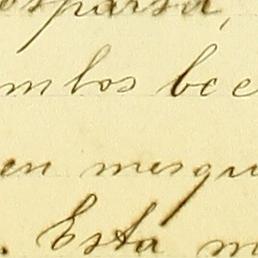 osparsa,
mlos bee
en mesqu
. Esta m